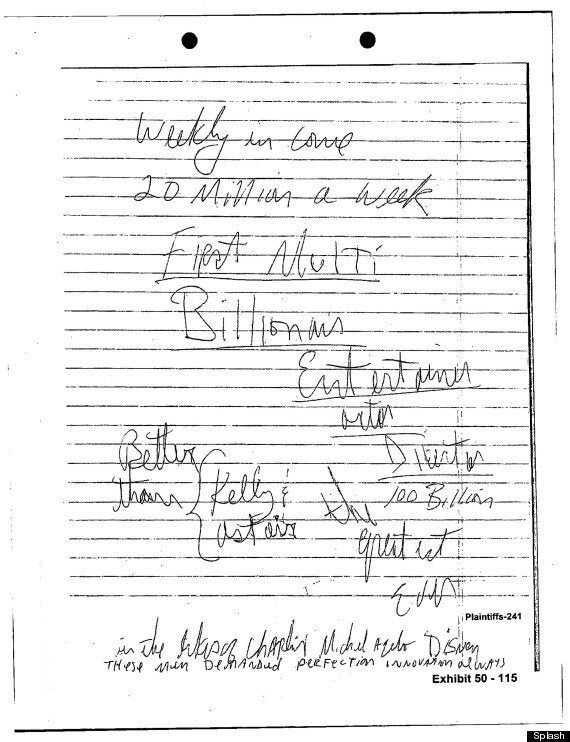 Weekly in come
20 Million a week
First Multi
Billionair
Entertainer
actor
Director
100 Billion
Better
than
Kelly &
astair
the
greatest
Ever
Plaintiffs-241
in the of Chaplin Michel Angelo Disney
These men Demanded perfection innovation always
Exhibit 50 - 115
Splash